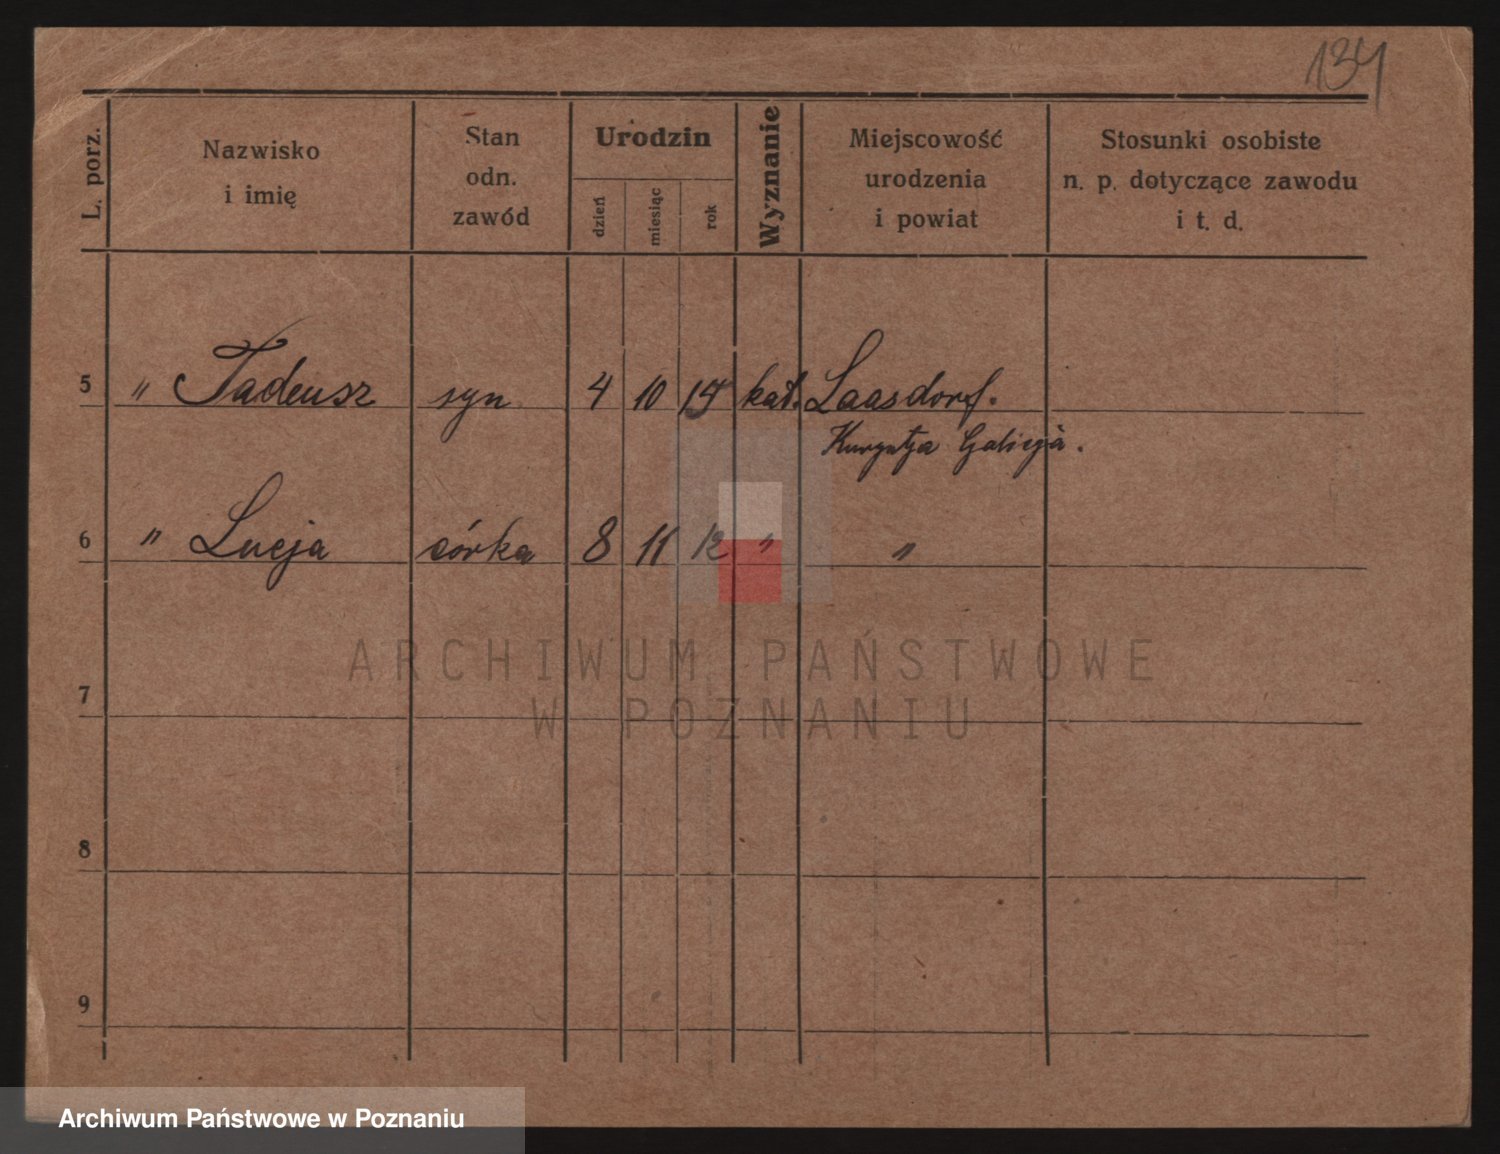 134
L. porz.
Nazwisko
i imię
Stan
odn.
zawód
Urodzin
dzień
miesiąc
rok
Wyznanie
Miejscowość
urodzenia
i powiat
Stosunki osobiste
n. p. dotyczące zawodu
i t. d.
5 " Tadeusz syn 4 10 15 kat. Laasdorf.
Galicja.
6 " Lucja córka 8 11 12 " "
ARCHIWUM PAŃSTWOWE
W POZNANIU
7
8
9
Archiwum Państwowe w Poznaniu